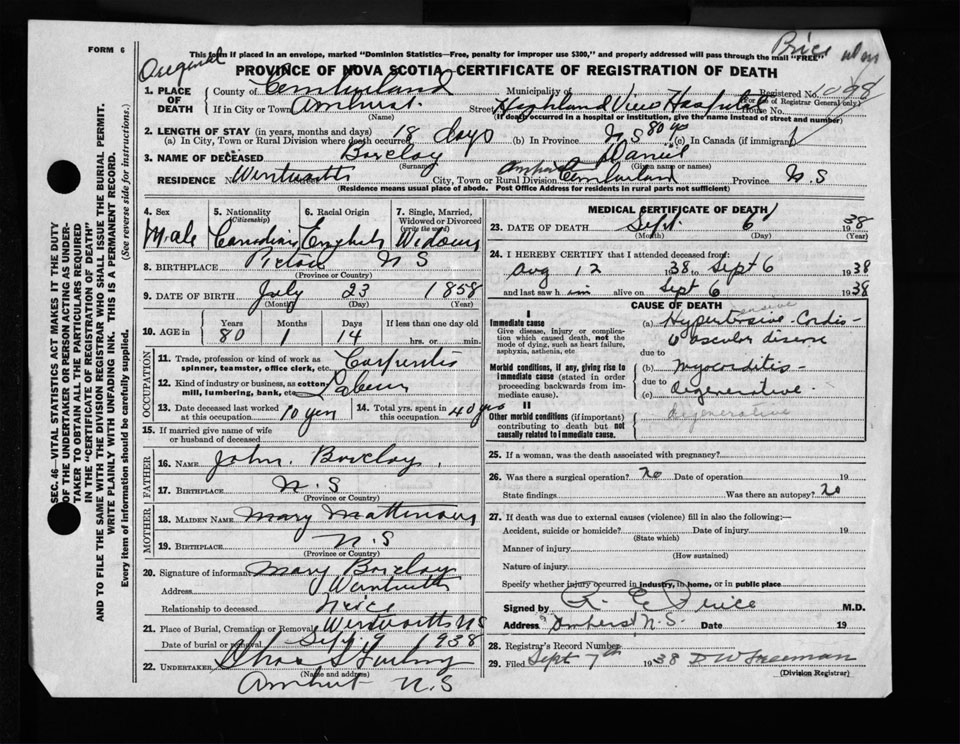 FORM 6
This form if placed in an envelope, marked "Dominion Statistics—Free, penalty for improper use $300," and properly addressed will pass through the mail "FREE"
Price
Original
PROVINCE OF NOVA SCOTIA—CERTIFICATE OF REGISTRATION OF DEATH
1. PLACE OF DEATH
County of Cumberland Municipality of Registered No.
(For use of Registrar General only)
If in City or Town Amherst. Street Highland View Hospital House No.
(Name) (If death occurred in a hospital or institution, give the name instead of street and number)
2. LENGTH OF STAY (in years, months and days)
(a) In City, Town or Rural Division where death occurred 18 days (b) In Province N S 80 yrs (c) In Canada (if immigrant)
3. NAME OF DECEASED Barclay Daniel
(Surname) (Given name or names)
RESIDENCE No. Wentworth Street City, Town or Rural Division Cumberland Province N.S
(Residence means usual place of abode. Post Office Address for residents in rural parts not sufficient)
4. Sex Male
5. Nationality (Citizenship) Canadian
6. Racial Origin English
7. Single, Married, Widowed or Divorced (write the word) Widower
8. BIRTHPLACE Pictou N S
(Province or Country)
9. DATE OF BIRTH July 23 1858
(Month) (Day) (Year)
10. AGE in Years Months Days If less than one day old
80 1 14 hrs. or min.
OCCUPATION
11. Trade, profession or kind of work as spinner, teamster, office clerk, etc. Carpenter
12. Kind of industry or business, as cotton mill, lumbering, bank, etc.
13. Date deceased last worked at this occupation 10 yrs
14. Total yrs. spent in this occupation 40 yrs
15. If married give name of wife or husband of deceased
FATHER
16. NAME John Barclay.
17. BIRTHPLACE N. S
(Province or Country)
MOTHER
18. MAIDEN NAME Mary
19. BIRTHPLACE N. S
(Province or Country)
20. Signature of informant Mary Barclay
Address Wentworth
Relationship to deceased Neice
21. Place of Burial, Cremation or Removal Wentworth NS
Date of burial or removal Sept. 9 1938
22. UNDERTAKER
(Name and address)
Amherst N.S
MEDICAL CERTIFICATE OF DEATH
23. DATE OF DEATH Sept. 6 1938
(Month) (Day) (Year)
24. I HEREBY CERTIFY that I attended deceased from:
Aug 12 1938 to Sept 6 1938
and last saw him alive on Sept 6 1938
CAUSE OF DEATH
I
Immediate cause
Give disease, injury or complication which caused death, not the mode of dying, such as heart failure, asphyxia, asthenia, etc
(a) Hypertensive Cardio-
Vascular disease
due to
Morbid conditions, if any, giving rise to immediate cause (stated in order proceeding backwards from immediate cause).
(b) Myocarditis
due to
(c) degenerative.
II
Other morbid conditions (if important) contributing to death but not causally related to immediate cause.
degenerative
25. If a woman, was the death associated with pregnancy?
26. Was there a surgical operation? no Date of operation 19
State findings Was there an autopsy? no
27. If death was due to external causes (violence) fill in also the following:—
Accident, suicide or homicide? Date of injury 19
(State which)
Manner of injury
(How sustained)
Nature of injury
Specify whether injury occurred in industry, in home, or in public place
Signed by R. E. Price M.D.
Address Amherst N.S. Date 19
28. Registrar's Record Number
29. Filed Sept 7th 1938 D W Freeman
(Division Registrar)
SEC. 46—VITAL STATISTICS ACT MAKES IT THE DUTY
OF THE UNDERTAKER OR PERSON ACTING AS UNDER-
TAKER TO OBTAIN ALL THE PARTICULARS REQUIRED
IN THE "CERTIFICATE OF REGISTRATION OF DEATH"
AND TO FILE THE SAME WITH THE DIVISION REGISTRAR WHO SHALL ISSUE THE BURIAL PERMIT.
WRITE PLAINLY WITH UNFADING INK. THIS IS A PERMANENT RECORD.
Every item of information should be carefully supplied. (See reverse side for instructions.)